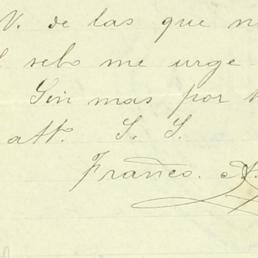 V. de las que n
sebo me urge
Sin mas por
att. S. S.
Franco. A.